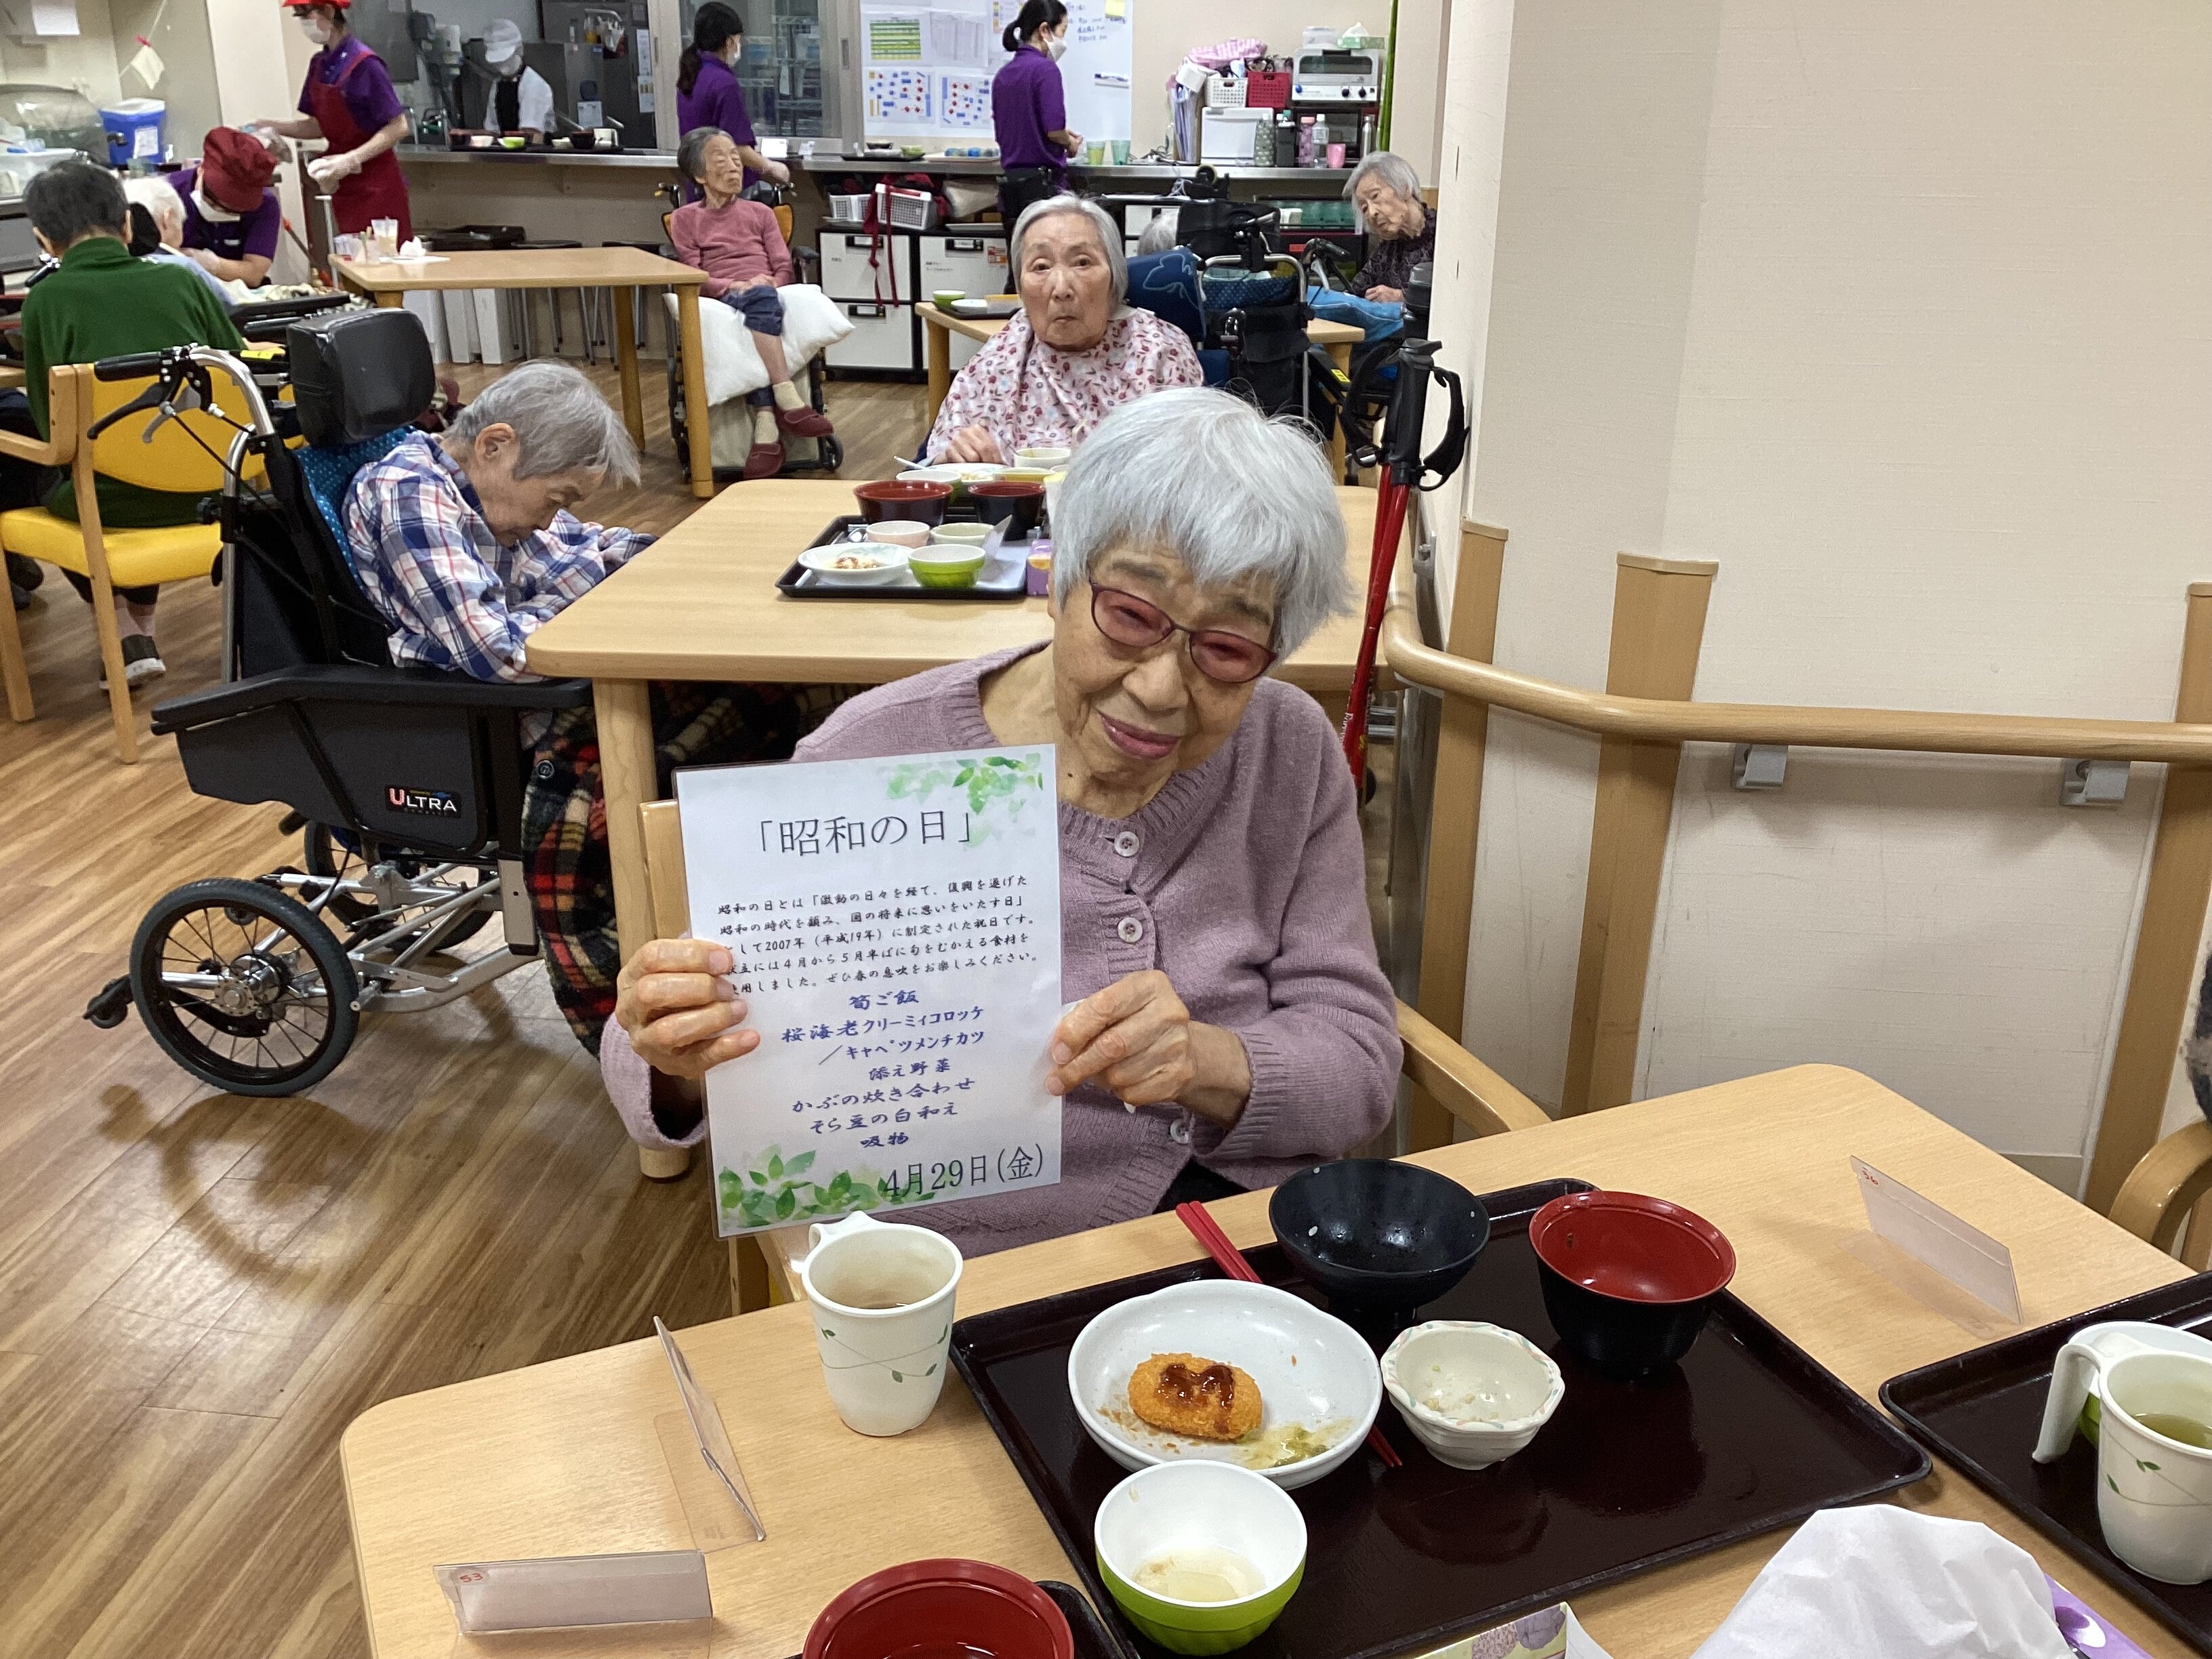 「昭和の日」
昭和の日とは「激動の日々を経て、復興を遂げた
昭和の時代を顧み、国の将来に思いをいたす日」
して2007年（平成19年）に制定された祝日です。
立には４月から５月半ばに旬をむかえる食材を
用しました。ぜひ春の息吹をお楽しみください。
筍ご飯
桜海老クリーミィコロッケ
／キャベツメンチカツ
添え野菜
かぶの炊き合わせ
そら豆の白和え
吸物
4月29日(金)
ULTRA
53